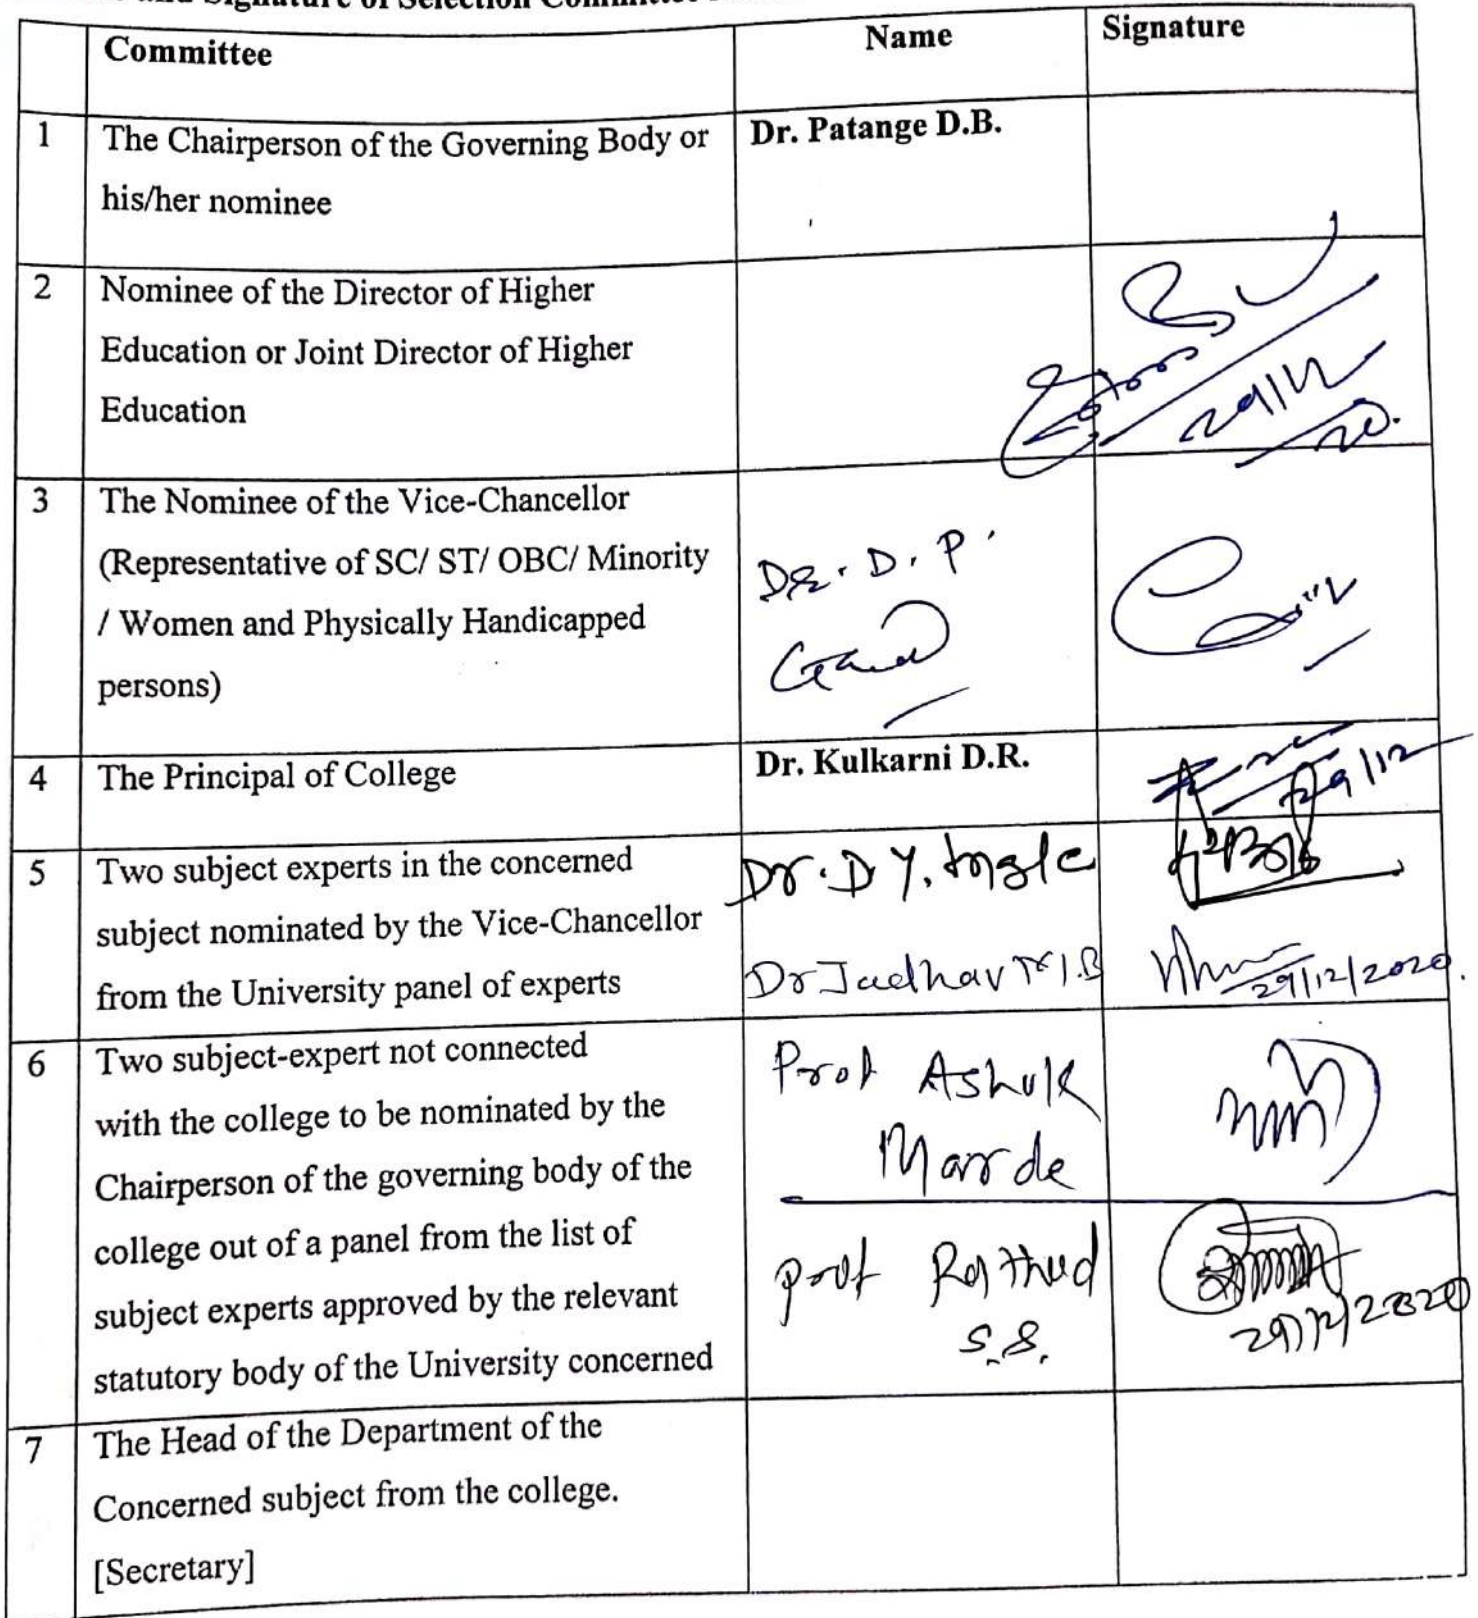 and Signature of Selection Committee
Committee Name Signature
1 The Chairperson of the Governing Body or his/her nominee Dr. Patange D.B.
2 Nominee of the Director of Higher
Education or Joint Director of Higher
Education
29/12
20.
3 The Nominee of the Vice-Chancellor
(Representative of SC/ ST/ OBC/ Minority
/ Women and Physically Handicapped
persons)
Dr. D. P.
4 The Principal of College Dr. Kulkarni D.R.
29/12
5 Two subject experts in the concerned
subject nominated by the Vice-Chancellor
from the University panel of experts
Dr. D Y. Ingle
Dr Jadhav M.B
29/12/2020.
6 Two subject-expert not connected
with the college to be nominated by the
Chairperson of the governing body of the
college out of a panel from the list of
subject experts approved by the relevant
statutory body of the University concerned
Prof Ashok
Marde
Prof Rathod
S.S.
29/12/2020
7 The Head of the Department of the
Concerned subject from the college.
[Secretary]